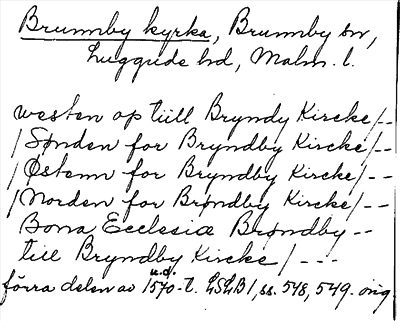 Brunnby kyrka, Brunnby sn,
Luggude hd, Malm. l.
westen op tiill Bryndy Kircke/--
/Sønden for Bryndby Kircke/--
/Østenn for Bryndby Kircke/--
/Norden for Brøndby Kircke/--
Bona Ecclesiæ Brøndby--
till Bryndby Kircke/---
förra delen av 1570-t. u.d. LSLB1, ss. 548, 549. orig